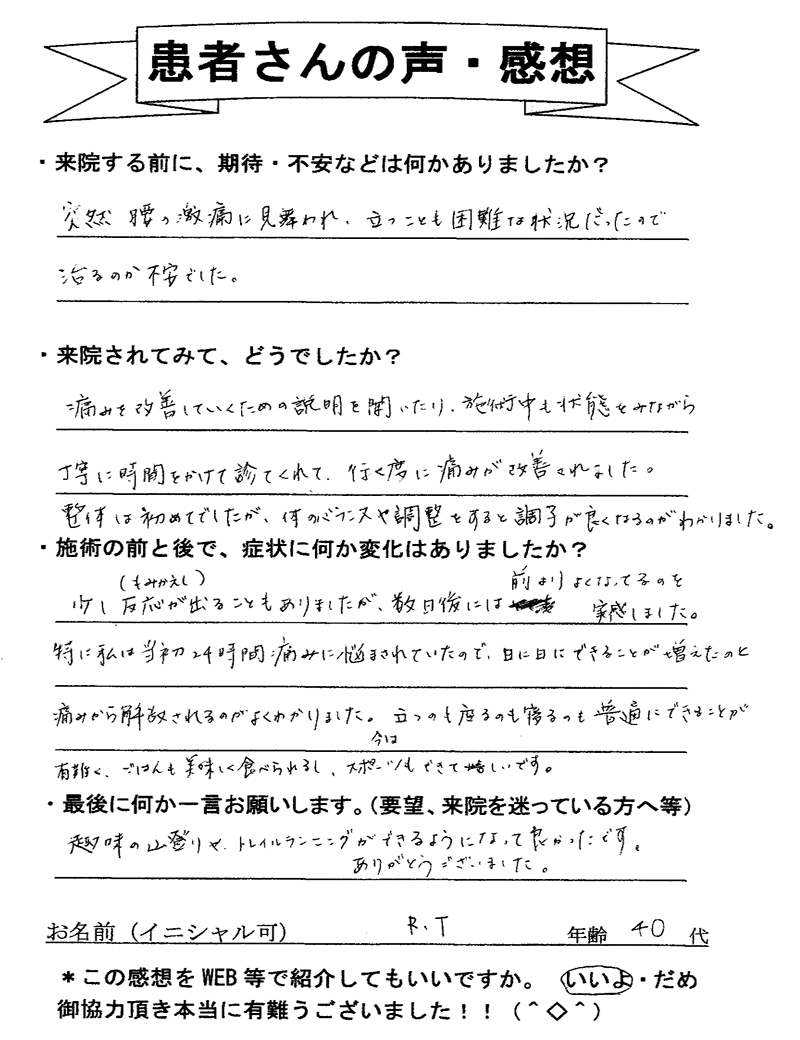 患者さんの声・感想
・来院する前に、期待・不安などは何かありましたか？
突然 腰の激痛に見舞われ、立つことも困難な状況だったので
治るのか不安でした。
・来院されてみて、どうでしたか？
痛みを改善していくための説明を聞いたり、施術中も状態をみながら
丁寧に時間をかけて診てくれて、行く度に痛みが改善されました。
整体は初めてでしたが、体のバランスや調整をすると調子が良くなるのがわかりました。
・施術の前と後で、症状に何か変化はありましたか？
(もみかえし) 前よりよくなってるのを
少し反応が出ることもありましたが、数日後には 実感しました。
特に私は当初24時間痛みに悩まされていたので、日に日にできることが増えたのと
痛みから解放されるのがよくわかりました。立つのも座るのも寝るのも普通にできることが
今は
有難く、ごはんも美味しく食べられるし、スポーツもできて嬉しいです。
・最後に何か一言お願いします。（要望、来院を迷っている方へ等）
趣味の山登りや、トレイルランニングができるようになって良かったです。
ありがとうございました。
お名前（イニシャル可） R.T 年齢 40 代
＊この感想をWEB等で紹介してもいいですか。 いいよ・だめ
御協力頂き本当に有難うございました！！（＾◇＾）